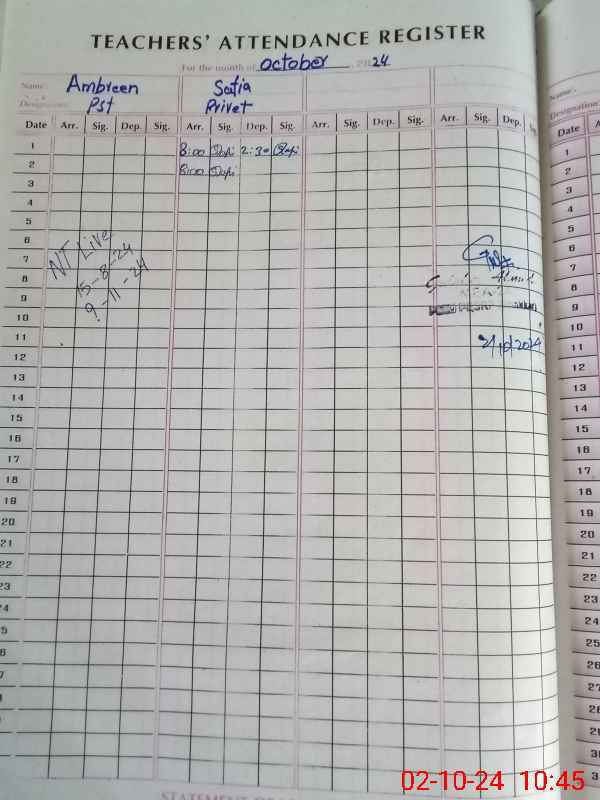 TEACHERS' ATTENDANCE REGISTER
For the month of October, 2024
Name: Ambreen Safia
Designation: PST Privet
Date Arr. Sig. Dep. Sig. Arr. Sig. Dep. Sig. Arr. Sig. Dep. Sig. Arr. Sig. Dep.
1 8:00 Safi 2:30 Safi
2 8:00 Safi
3
4
5
6
7
8
9
10
11
12
13
14
15
16
17
18
19
20
21
22
23
NT Live
15-8-24
9-11-24
2/10/2024
Name:
Designation:
Date
1
2
3
4
5
6
7
8
9
10
11
12
13
14
15
16
17
18
19
20
21
22
23
24
25
26
27
28
29
STATEMENT
02-10-24 10:45